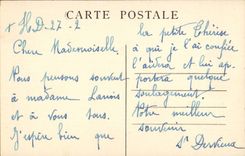 CARTE POSTALE
+ H.D-27-2
Chère Mademoiselle,
Nous pensons souvent
à madame Lanois
et à vous tous.
J'espère bien que
la petite Thérèse
à qui je l'ai confiée
l'aidera et lui ap-
portera quelque
soulagement.
Notre meilleur
souvenir